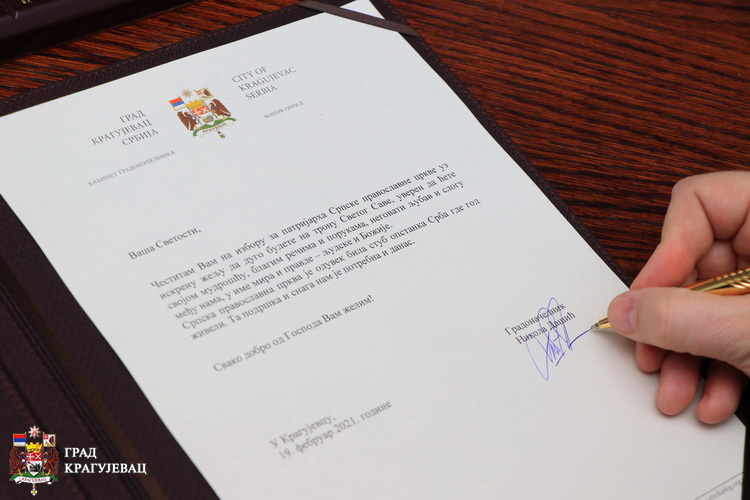 ГРАД
КРАГУЈЕВАЦ
СРБИЈА
CITY OF
KRAGUJEVAC
SERBIA
КАБИНЕТ ГРАДОНАЧЕЛНИКА
MAYOR OFFICE
Ваша Светости,
Честитам Вам на избору за патријарха Српске православне цркве уз
искрену жељу да дуго будете на трону Светог Саве, уверен да ћете
својом мудрошћу, благим речима и порукама, неговати љубав и слогу
међу нама, у име мира и правде – људске и Божије.
Српска православна црква је одувек била стуб опстанка Срба где год
живели. Та подршка и снага нам је потребна и данас.
Свако добро од Господа Вам желим!
Градоначелник
Никола Дашић
У Крагујевцу,
19. фебруар 2021. године
ГРАД
КРАГУЈЕВАЦ